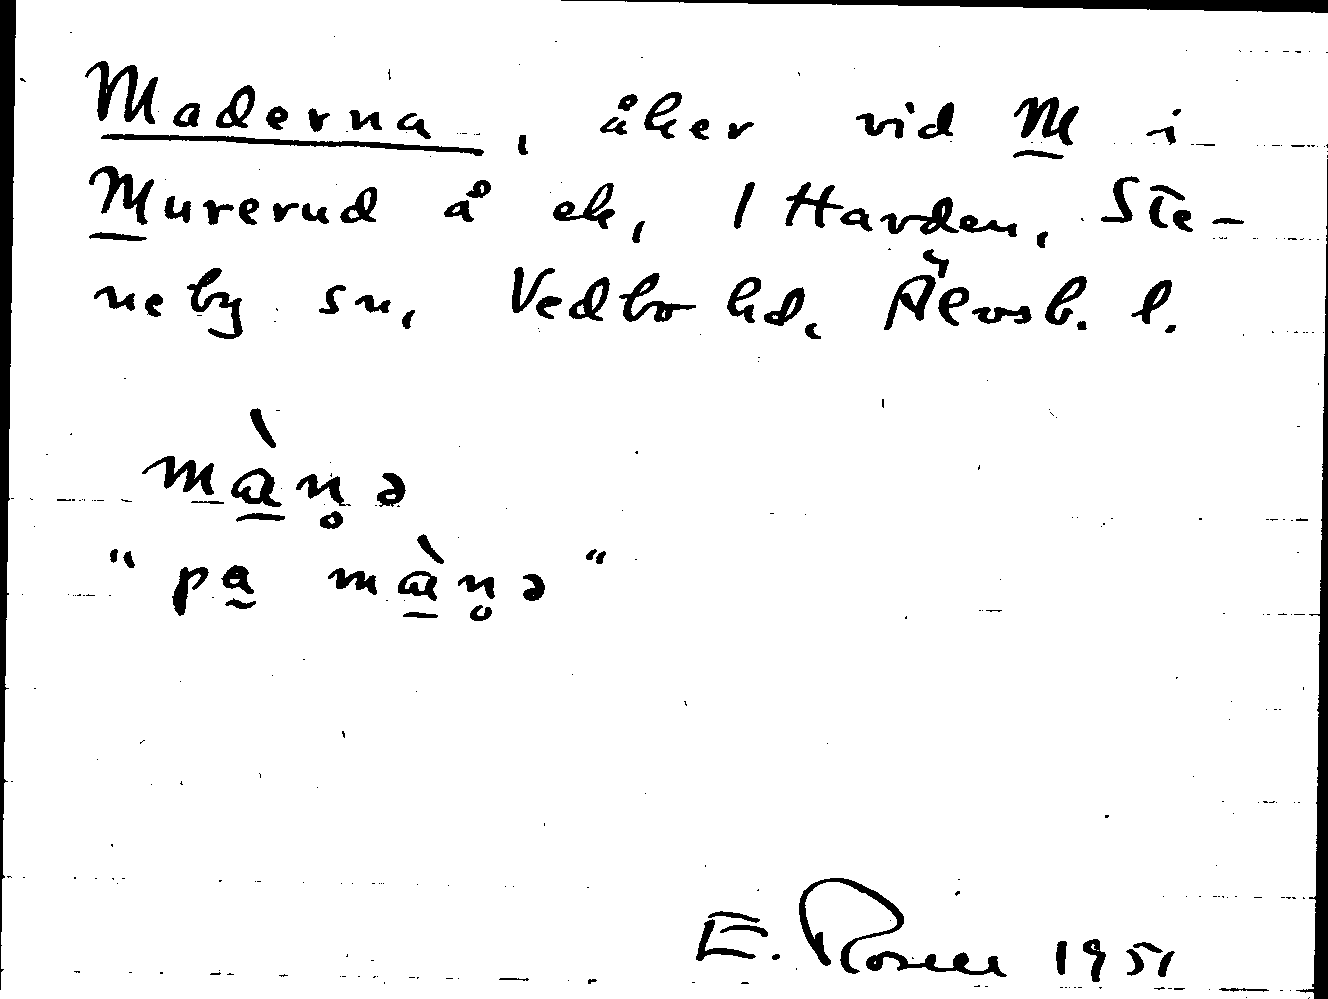 Maderna, åker vid M i
Murerud å ek, 1 Harden, Ste-
neby sn, Vedbo hd. Älvsb. l.
màṇə
"pa màṇə"
E. Rosén 1951